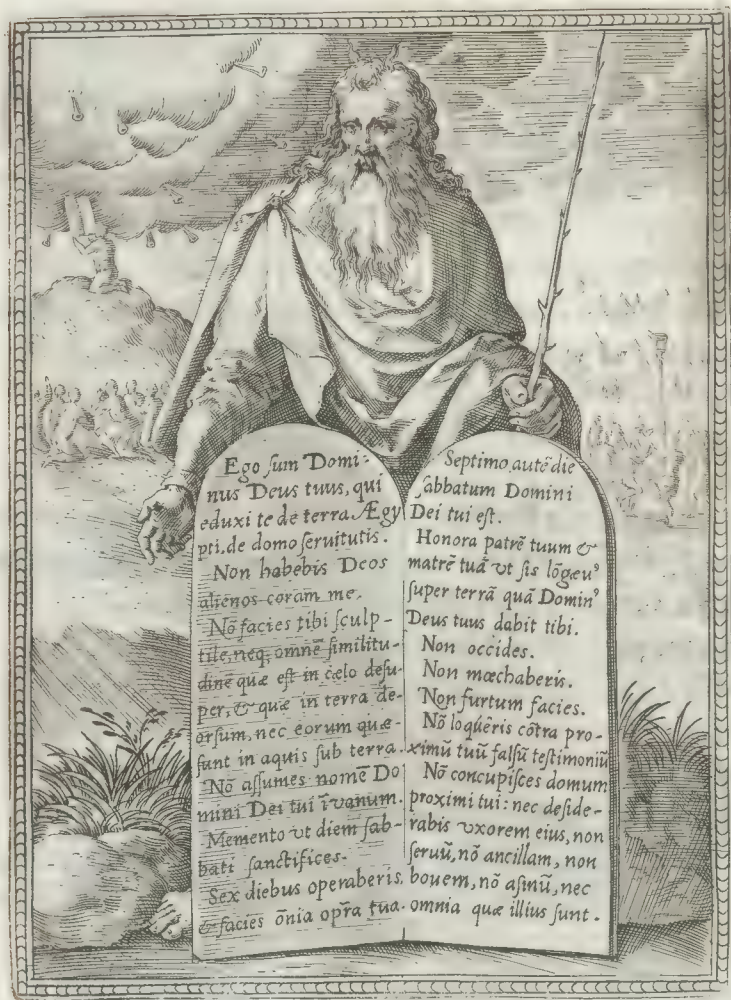 Ego ſum Domi-
nus Deus tuus, qui
eduxi te de terra Ægy
pti, de domo ſeruitutis.
Non habebis Deos
alienos coram me.
Nō facies tibi ſculp-
tile, neq, omnē ſimilitu-
dinē quæ eſt in cælo deſu-
per, & quæ in terra de-
orſum, nec eorum quæ-
ſunt in aquis ſub terra.
Nō aſſumes nomē Do
mini Dei tui ī vanum.
Memento vt diem ſab-
bati ſanctifices.
Sex diebus operaberis,
& facies ōnia opr̄a tua.
Septimo autē die
ſabbatum Domini
Dei tui eſt.
Honora patrē tuum &
matrē tuā vt ſis lōgæuꝰ
ſuper terrā quā Dominꝰ
Deus tuus dabit tibi.
Non occides.
Non mœchaberis.
Non furtum facies.
Nō loquēris cōtra pro-
ximū tuū falſū teſtimoniū
Nō concupiſces domum
proximi tui: nec deſide-
rabis vxorem eius, non
ſeruū, nō ancillam, non
bouem, nō aſinū, nec
omnia quæ illius ſunt.